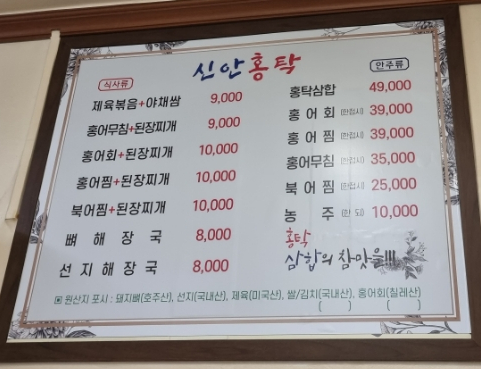 신안홍탁
식사류
제육볶음+야채쌈 9,000
홍어무침+된장찌개 9,000
홍어회+된장찌개 10,000
홍어찜+된장찌개 10,000
북어찜+된장찌개 10,000
뼈해장국 8,000
선지해장국 8,000
안주류
홍탁삼합 49,000
홍어회 (한접시) 39,000
홍어찜 (한접시) 39,000
홍어무침 (한접시) 35,000
북어찜 (한접시) 25,000
농주 (한 되) 10,000
홍탁
삼합의 참맛을!!!
▣ 원산지 표시 : 돼지뼈(호주산), 선지(국내산), 제육(미국산), 쌀/김치(국내산), 홍어회(칠레산)
( ) ( )